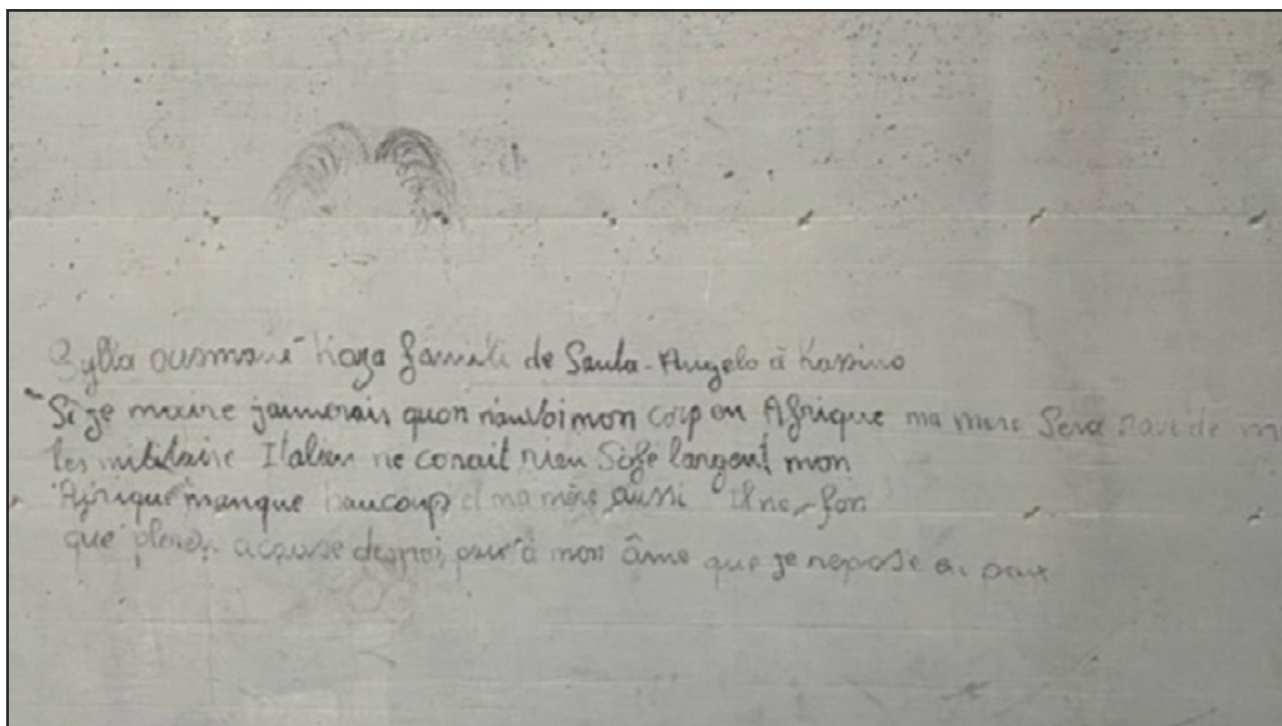 Sylla ousmané Kaza famili de Santa-Angelo à Kassino
Si je meure jaimerais quon n'auvoi mon corp en Afrique ma mère Sera ravi de
les militaire Italien ne conait rien Sofé largent mon
Afrique manque baucoup et ma mère aussi Il ne-fon
que pleurer acause de moi, à mon âme que je repose en paix